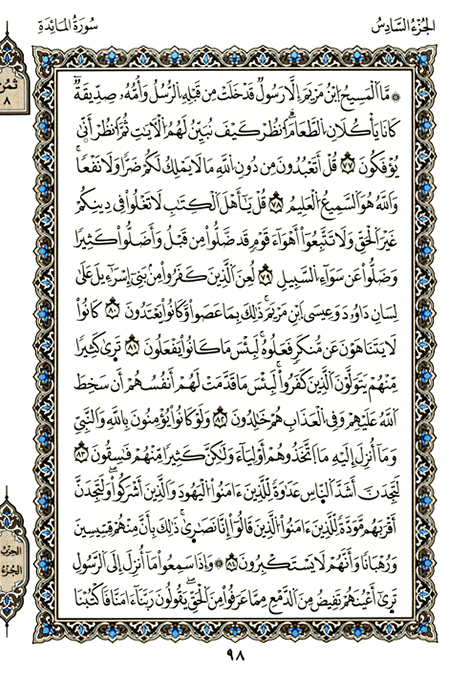 الجُزْءُ السَّادِسُ
سُورَةُ المَائِدَةِ
ثُمُن
٨
۞ مَّا اَ۬لْمَسِيحُ اُ۪بْنُ مَرْيَمَ إِلَّا رَسُولٌ قَدْ خَلَتْ مِن قَبْلِهِ اِ۬لرُّسُلُ وَأُمُّهُۥ صِدِّيقَةٌ
كَانَا يَأْكُلَانِ اِ۬لطَّعَامَ اَ۟نظُرْ كَيْفَ نُبَيِّنُ لَهُمُ اُ۬لْأٓيَٰتِ ثُمَّ اَ۟نظُرْ أَنّ۪يٰ
يُوفَكُونَ ٧٧ قُلَ اَتَعْبُدُونَ مِن دُونِ اِ۬للَّهِ مَا لَا يَمْلِكُ لَكُمْ ضَرّاً وَلَا نَفْعاً
وَاللَّهُ هُوَ اَ۬لسَّمِيعُ اُ۬لْعَلِيمُ ٧٨ قُلْ يَٰٓأَهْلَ اَ۬لْكِتَٰبِ لَا تَغْلُوا۟ فِي دِينِكُمْ
غَيْرَ اَ۬لْحَقِّ وَلَا تَتَّبِعُوا۟ أَهْوَآءَ قَوْمٍ قَد ضَّلُّوا۟ مِن قَبْلُ وَأَضَلُّوا۟ كَثِيراً
وَضَلُّوا۟ عَن سَوَآءِ اِ۬لسَّبِيلِ ٧٩ لُعِنَ اَ۬لذِينَ كَفَرُوا۟ مِنۢ بَنِي إِسْرَآءِيلَ عَلَىٰ
لِسَانِ دَاوُۥدَ وَعِيسَى اَ۪بْنِ مَرْيَمَ ذَٰلِكَ بِمَا عَصَوا۟ وَّكَانُوا۟ يَعْتَدُونَ ٨٠ كَانُوا۟
لَا يَتَنَاهَوْنَ عَن مُّنكَرٍ فَعَلُوهُ لَبِئْسَ مَا كَانُوا۟ يَفْعَلُونَ ٨١ تَرَىٰ كَثِيراً
مِّنْهُمْ يَتَوَلَّوْنَ اَ۬لذِينَ كَفَرُوا۟ لَبِئْسَ مَا قَدَّمَتْ لَهُمْ أَنفُسُهُمْ أَن سَخِطَ
اَ۬للَّهُ عَلَيْهِمْ وَفِي اِ۬لْعَذَابِ هُمْ خَٰلِدُونَ ٨٢ وَلَوْ كَانُوا۟ يُؤْمِنُونَ بِاللَّهِ وَالنَّبِيِّ
وَمَا أُنزِلَ إِلَيْهِ مَا اَ۪تَّخَذُوهُمْ أَوْلِيَآءَ وَلَٰكِنَّ كَثِيراً مِّنْهُمْ فَٰسِقُونَ ٨٣
لَتَجِدَنَّ أَشَدَّ اَ۬لنَّاسِ عَدَٰوَةً لِّلذِينَ ءَامَنُوا۟ اُ۬لْيَهُودَ وَالذِينَ أَشْرَكُوا۟ وَلَتَجِدَنَّ
أَقْرَبَهُم مَّوَدَّةً لِّلذِينَ ءَامَنُوا۟ اُ۬لذِينَ قَالُوا۟ إِنَّا نَصَٰرَىٰ ذَٰلِكَ بِأَنَّ مِنْهُمْ قِسِّيسِينَ
وَرُهْبَاناً وَأَنَّهُمْ لَا يَسْتَكْبِرُونَ ٨٤ ۞ وَإِذَا سَمِعُوا۟ مَا أُنزِلَ إِلَى اَ۬لرَّسُولِ
تَرَىٰ أَعْيُنَهُمْ تَفِيضُ مِنَ اَ۬لدَّمْعِ مِمَّا عَرَفُوا۟ مِنَ اَ۬لْحَقِّ يَقُولُونَ رَبَّنَا ءَامَنَّا فَاكْتُبْنَا
الحِزْبُ
الجُزْءُ
٩٨